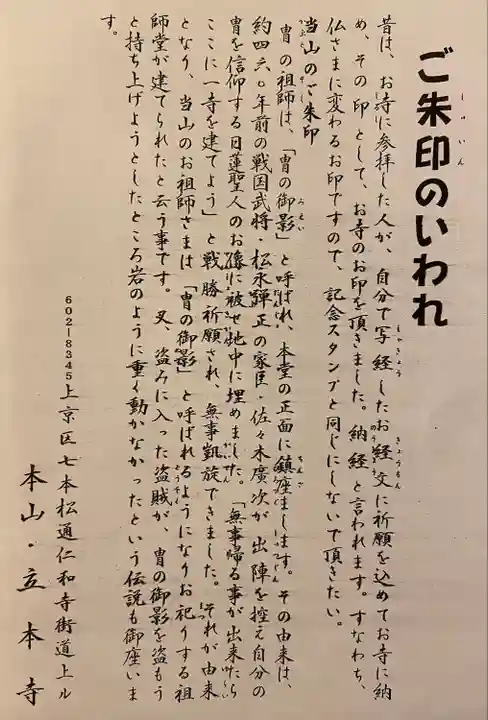 ご朱印のいわれ
しゅいん
昔は、お寺に参拝した人が、自分で写経したお経文に祈願を込めてお寺に納
しゃきょう
きょうもん
め、その印として、お寺のお印を頂きました。納経と言われます。すなわち、
のうきょう
仏さまに変わるお印ですので、記念スタンプと同じにしないで頂きたい。
当山のご朱印
冑の祖師は、「冑の御影」と呼ばれ、本堂の正面に鎮座まします。その由来は、
みえい
ちんざ
約四六〇年前の戦国武将・松永弾正の家臣・佐々木廣次が出陣を控え自分の
冑を信仰する日蓮聖人のお像に被せ地中に埋めました。「無事帰る事が出来たら
ここに一寺を建てよう」と戦勝祈願され、無事凱旋できました。それが由来
となり、当山のお祖師さまは「冑の御影」と呼ばれるようになりお祀りする祖
師堂が建てられたと云う事です。又、盗みに入った盗賊が、冑の御影を盗もう
とうぞく
と持ち上げようとしたところ岩のように重く動かなかったという伝説も御座いま
す。
602-8345上京区七本松通仁和寺街道上ル
本山・立本寺